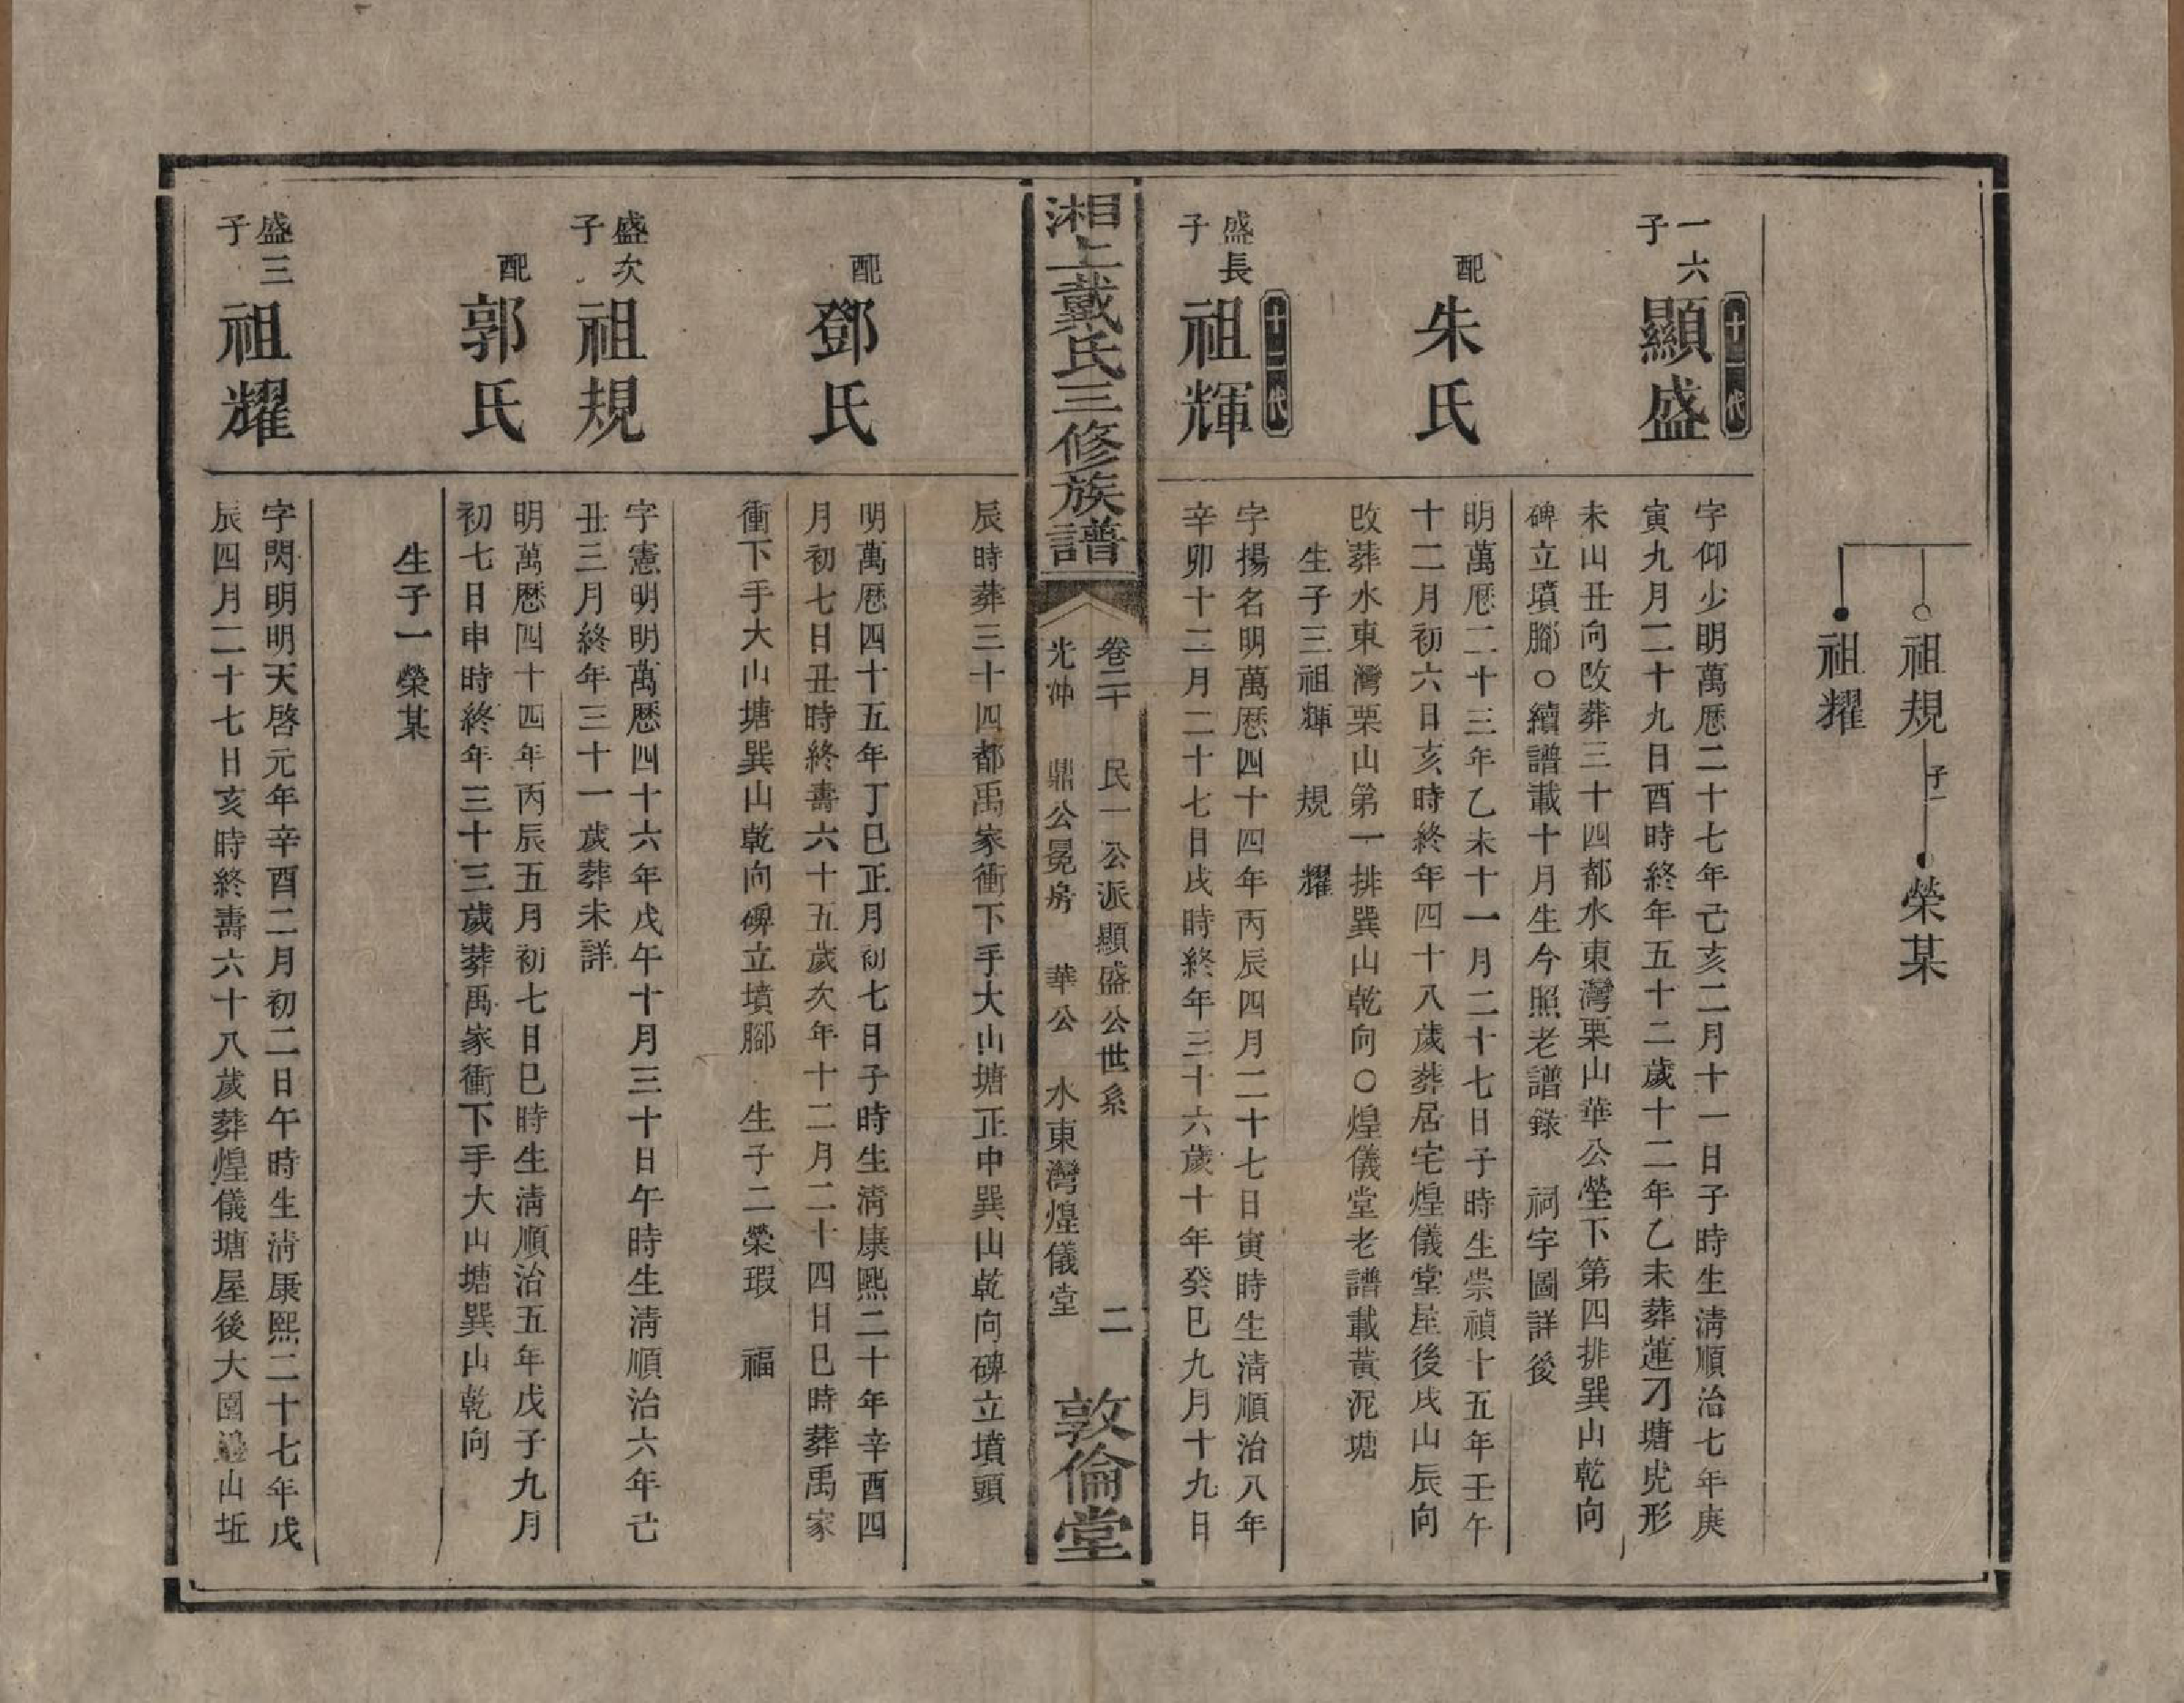 祖規 子一 榮某
祖耀
十一代
一六子 顯盛
字仰少明萬歷二十七年己亥二月十一日子時生淸順治七年庚
寅九月二十九日酉時終年五十二歲十二年乙未葬蓮刀塘虎形
未山丑向改葬三十四都水東灣栗山華公塋下第四排巽山乾向
碑立墳腳○續譜載十月生今照老譜錄 祠字圖詳後
配 朱氏
明萬歷二十三年乙未十一月二十七日子時生崇禎十五年壬午
十二月初六日亥時終年四十八歲葬居宅煌儀堂屋後戌山辰向
改葬水東灣栗山第一排巽山乾向○煌儀堂老譜載黃泥塘
生子三祖輝 規 耀
十二代
盛長子 祖輝
字揚名明萬歷四十四年丙辰四月二十七日寅時生淸順治八年
辛卯十二月二十七日戌時終年三十六歲十年癸巳九月十九日
湘上戴氏三修族譜
卷二十 民一公派顯盛公世系 二
光沖 鼎公冕房 華公 水東灣煌儀堂
敦倫堂
辰時葬三十四都禹家衝下手大山塘正中巽山乾向碑立墳頭
配 鄧氏
明萬歷四十五年丁巳正月初七日子時生淸康熙二十年辛酉四
月初七日丑時終壽六十五歲次年十二月二十四日巳時葬禹家
衝下手大山塘巽山乾向碑立墳腳 生子二榮瑕 福
盛次子 祖規
字憲明明萬歷四十六年戊午十月三十日午時生淸順治六年己
丑三月終年三十一歲葬未詳
配 郭氏
明萬歷四十四年丙辰五月初七日巳時生淸順治五年戊子九月
初七日申時終年三十三歲葬禹家衝下手大山塘巽山乾向
生子一榮某
盛三子 祖耀
字閃明明天啓元年辛酉二月初二日午時生淸康熙二十七年戊
辰四月二十七日亥時終壽六十八歲葬煌儀塘屋後大園邊山坵